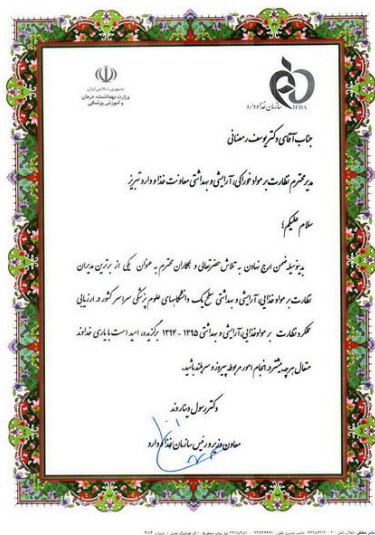 جمهوری اسلامی ایران
وزارت بهداشت، درمان
و آموزش پزشکی
IFDA
سازمان غذا و دارو
جناب آقای دکتر یوسف رمضانی
مدیر محترم نظارت بر مواد خوراکی، آرایشی و بهداشتی معاونت غذا و دارو تبریز
سلام علیکم؛
بدینوسیله ضمن ارج نهادن به تلاش حضرتعالی و همکاران محترم به عنوان یکی از برترین مدیران
نظارت بر مواد غذایی، آرایشی و بهداشتی سطح یک دانشگاههای علوم پزشکی سراسر کشور در ارزیابی
عملکرد نظارت بر مواد غذایی، آرایشی و بهداشتی ۱۳۹۵ - ۱۳۹۴ برگزیده، امید است با یاری خداوند
متعال هر چه بیشتر در انجام امور مربوطه پیروز و سربلند باشید.
دکتر رسول دیناروند
معاون وزیر و رئیس سازمان غذا و دارو